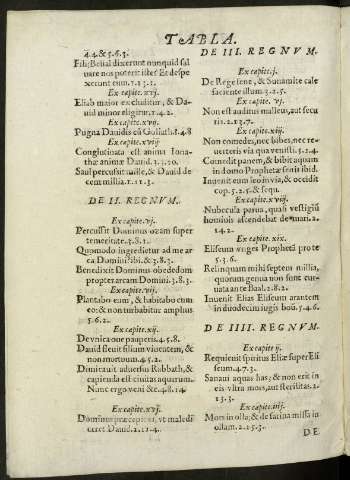 TABLA.
4.4.& 5.6.3.
Filij Belial dixerunt nunquid sal
uare nos poterit iste? Et despe
xerunt eum. 7.13.1.
Ex capite. xvj.
Eliab maior excluditur, & Da
uid minor eligitur, 1.4.2.
Ex capite. xvij.
Pugna Dauidis cũ Goliath. 1.4.8
Ex capite. xviij
Conglutinata est anima Iona-
thæ animæ Dauid. 1.3.10.
Saul percussit mille, & Dauid de
cem millia. 1.11.3.
DE II. REGNVM.
Ex capite. vj.
Percussit Dominus ozam super
temeritate. 3.8.1.
Quomodo ingredietur ad me ar
ca Domini? ibi. & 3.8.3.
Benedixit Dominus obededom
propter arcam Domini. 3.8.3.
Ex capite. vij.
Plantabo eum, & habitabo cum
eo: & non turbabitur amplius
5.6.2.
Ex capite. xij.
De vnica oue pauperis. 4.5.8.
Dauid fleuit filium viuentem, &
non mortuum. 4.5.2.
Dimicauit aduersus Rabbath, &
capienda est ciuitas aquarum.
Nunc ergo veni &c. 4.8.14.
Ex capite. xvj.
Dominus præcepit ei, vt maledi
ceret Dauid. 2.11.4.
DE III. REGNVM.
Ex capite. j.
De Rege sene, & Sunamite cale
faciente illum. 3.2.5.
Ex capite. vj.
Non est auditus malleus, aut secu
ris. 2.13.7.
Ex capite. xiij.
Non comedes, nec bibes, nec re-
uerteris via qua venisti. 5.2.4.
Comedit panem, & bibit aquam
in domo Prophetæ senis ibid.
Inuenit eum leo in via, & occidit
cop. 5.2.5. & sequ.
Ex capite. xviij.
Nubecula parua, quasi vestigiũ
hominis ascendebat de mari. 2.
14.2.
Ex capite. xix.
Eliseum vnges Prophetã pro te
5.3.6.
Relinquam mihi septem millia,
quorum genua non sunt cur-
uata ante Baal. 2.8.2.
Inuenit Elias Eliseum arantem
in duodecim iugis boũ. 5.7.6.
DE IIII. REGNVM.
Ex capite ij.
Requieuit spiritus Eliæ super Eli
seum. 4.7.3.
Sanaui aquas has; & non erit in
eis vltra mors, aut sterilitas. 2.
13.3.
Ex capite. iiij.
Mors in olla; & de farina missa in
ollam. 2.15.3.
DE